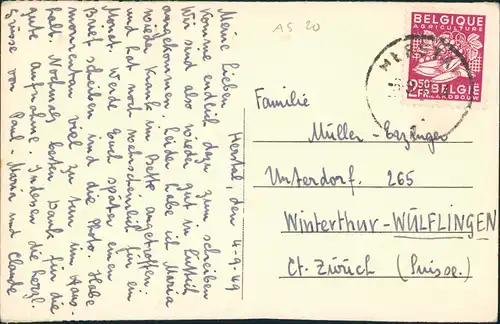 Herstal, den 4-9-49
Meine Lieben
Komme endlich dazu zum schreiben
Wir sind also wieder gut in Lüttich
angekommen. Leider habe ich Maria
wieder krank im Bette angetroffen.
und hat noch wahrscheinlich für ein
Monat. Werde Euch später einen
Brief schreiben und die Photo. Habe
momentan viel zu tun im Haus-
halt. Nochmals besten Dank für die
gute Aufnahme. Indessen die herzl.
Grüsse von Paul-Maria und Claude
AS 20
BELGIQUE
AGRICULTURE
2.50 FR
BELGIE
LANDBOUW
Familie
Müller-Erzinger
Unterdorf. 265
Winterthur-WÜLFLINGEN
Ct. Zürich (Suisse.)